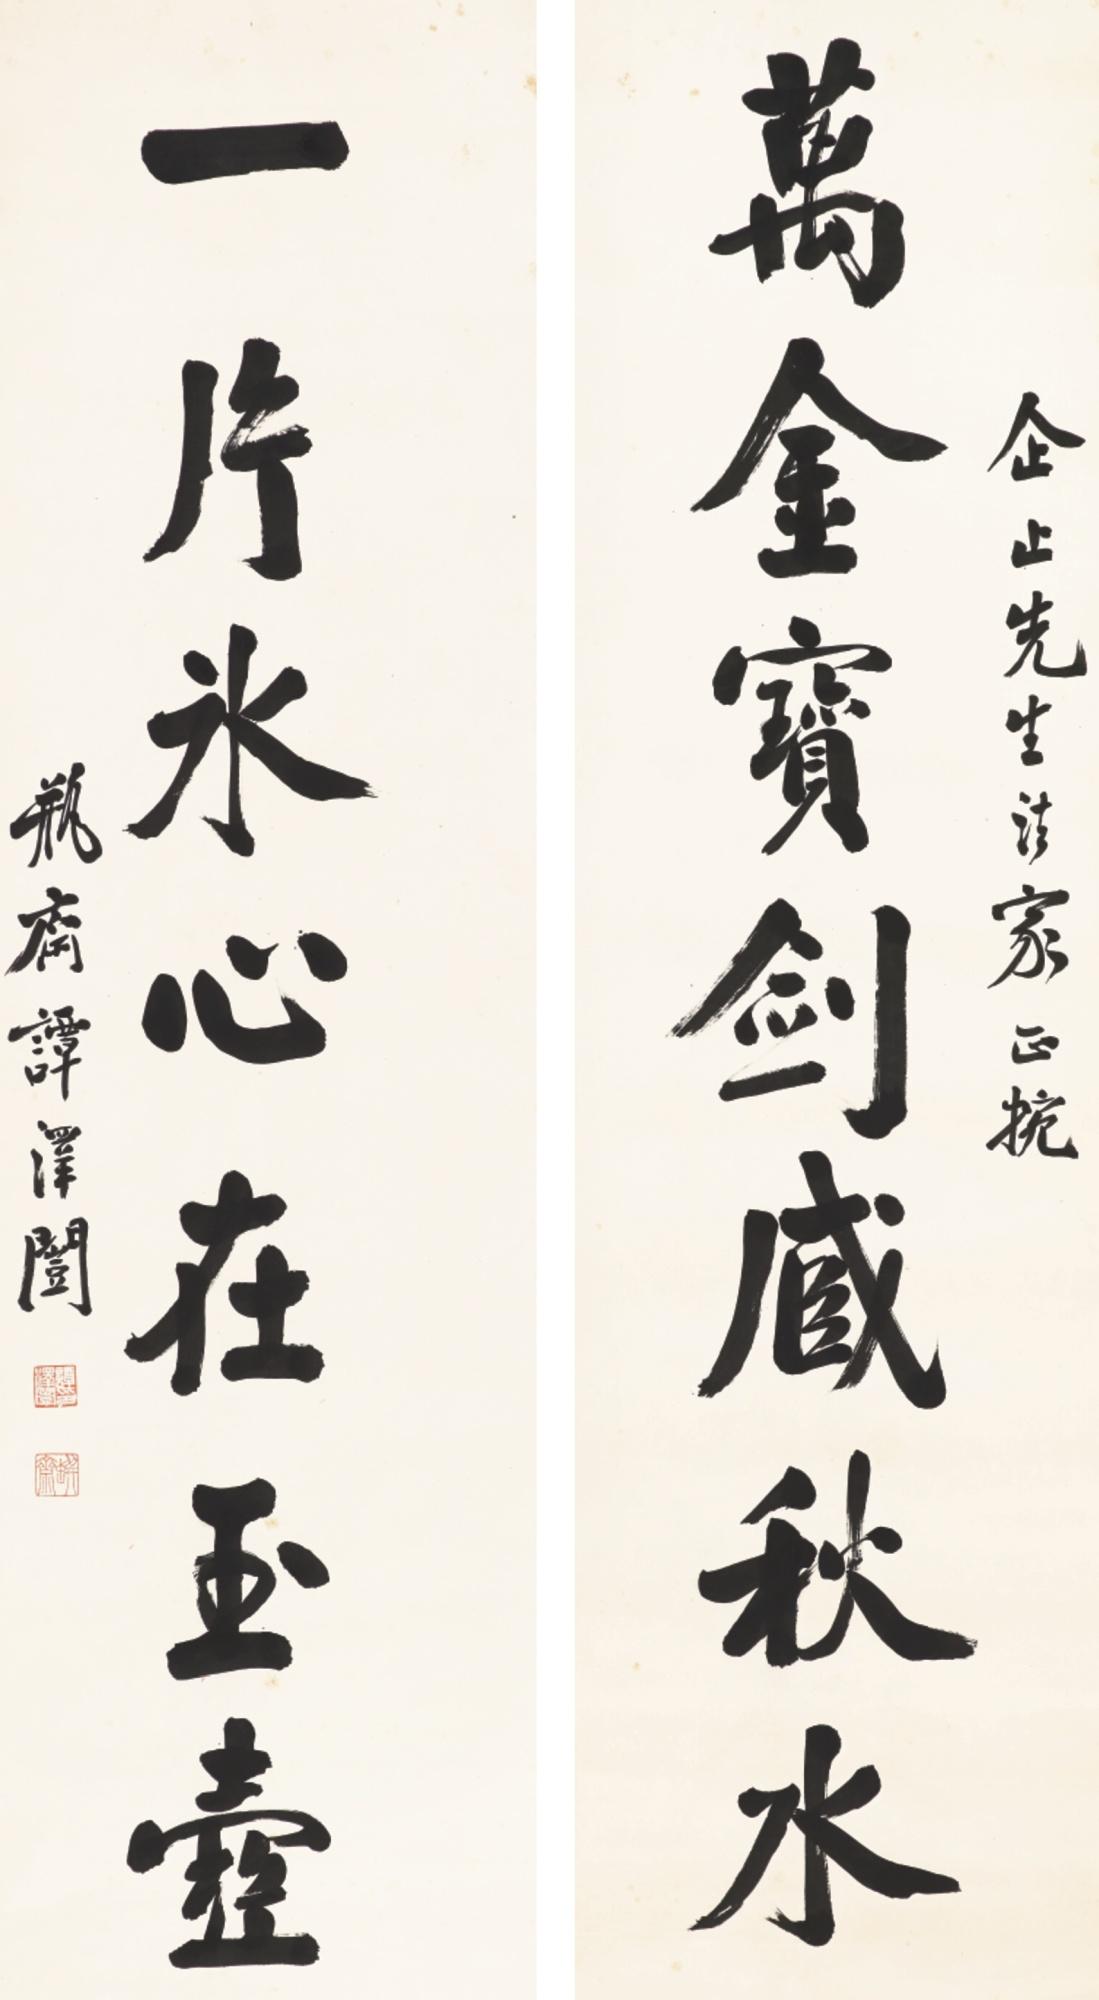 萬金寶劍藏秋水
企止先生法家正挽
一片冰心在玉壺
瓶齋譚澤闓